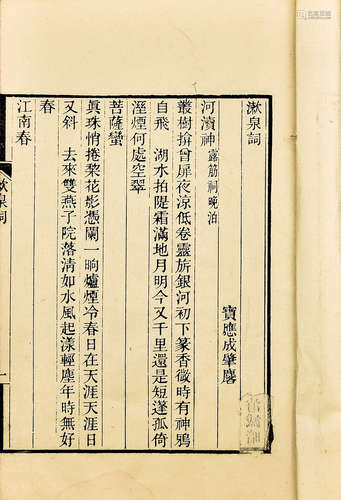 漱泉詞
寶應成肇麐
河瀆神 露筋祠晚泊
叢樹擁曾扉夜涼低卷靈旂銀河初下篆香微時有神鴉
自飛 湖水拍隄霜滿地月明今又千里還是短蓬孤倚
溼煙何處空翠
菩薩蠻
眞珠悄捲棃花影憑闌一晌爐煙冷春日在天涯天涯日
又斜 去來雙燕子院落淸如水風起漾輕塵年時無好
春
江南春
漱泉詞
一